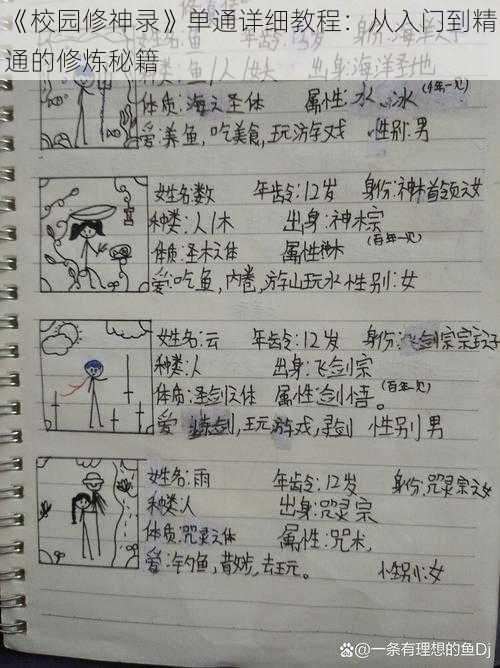 《校园修神录》单通详细教程：从入门到精
通的修炼秘籍
种类:鱼/人/女大 出身:海洋圣地
体质:海元圣体 属性:水、冰
爱:养鱼,吃美食,玩游戏 性别:男
姓名:数 年龄:12岁 身份:神木首领之女
种类:人/木 出身:神木宗
体质:圣木之体 属性:神木(百年一见)
爱:吃鱼,内卷,游山玩水 性别:女
姓名:云 年龄:12岁 身份:飞剑宗宗主之子
种类:人 出身:飞剑宗
体质:圣剑之体 属性:剑悟。(百年一见)
爱 练剑,玩游戏,寻剑 性别男
姓名:雨 年龄:12岁 身份:咒灵宗之女
种类:人 出身:咒灵宗
体质:咒灵之体 属性:咒术,
爱:钓鱼,去玩。 性别:女
百家号@一条有理想的鱼Dj